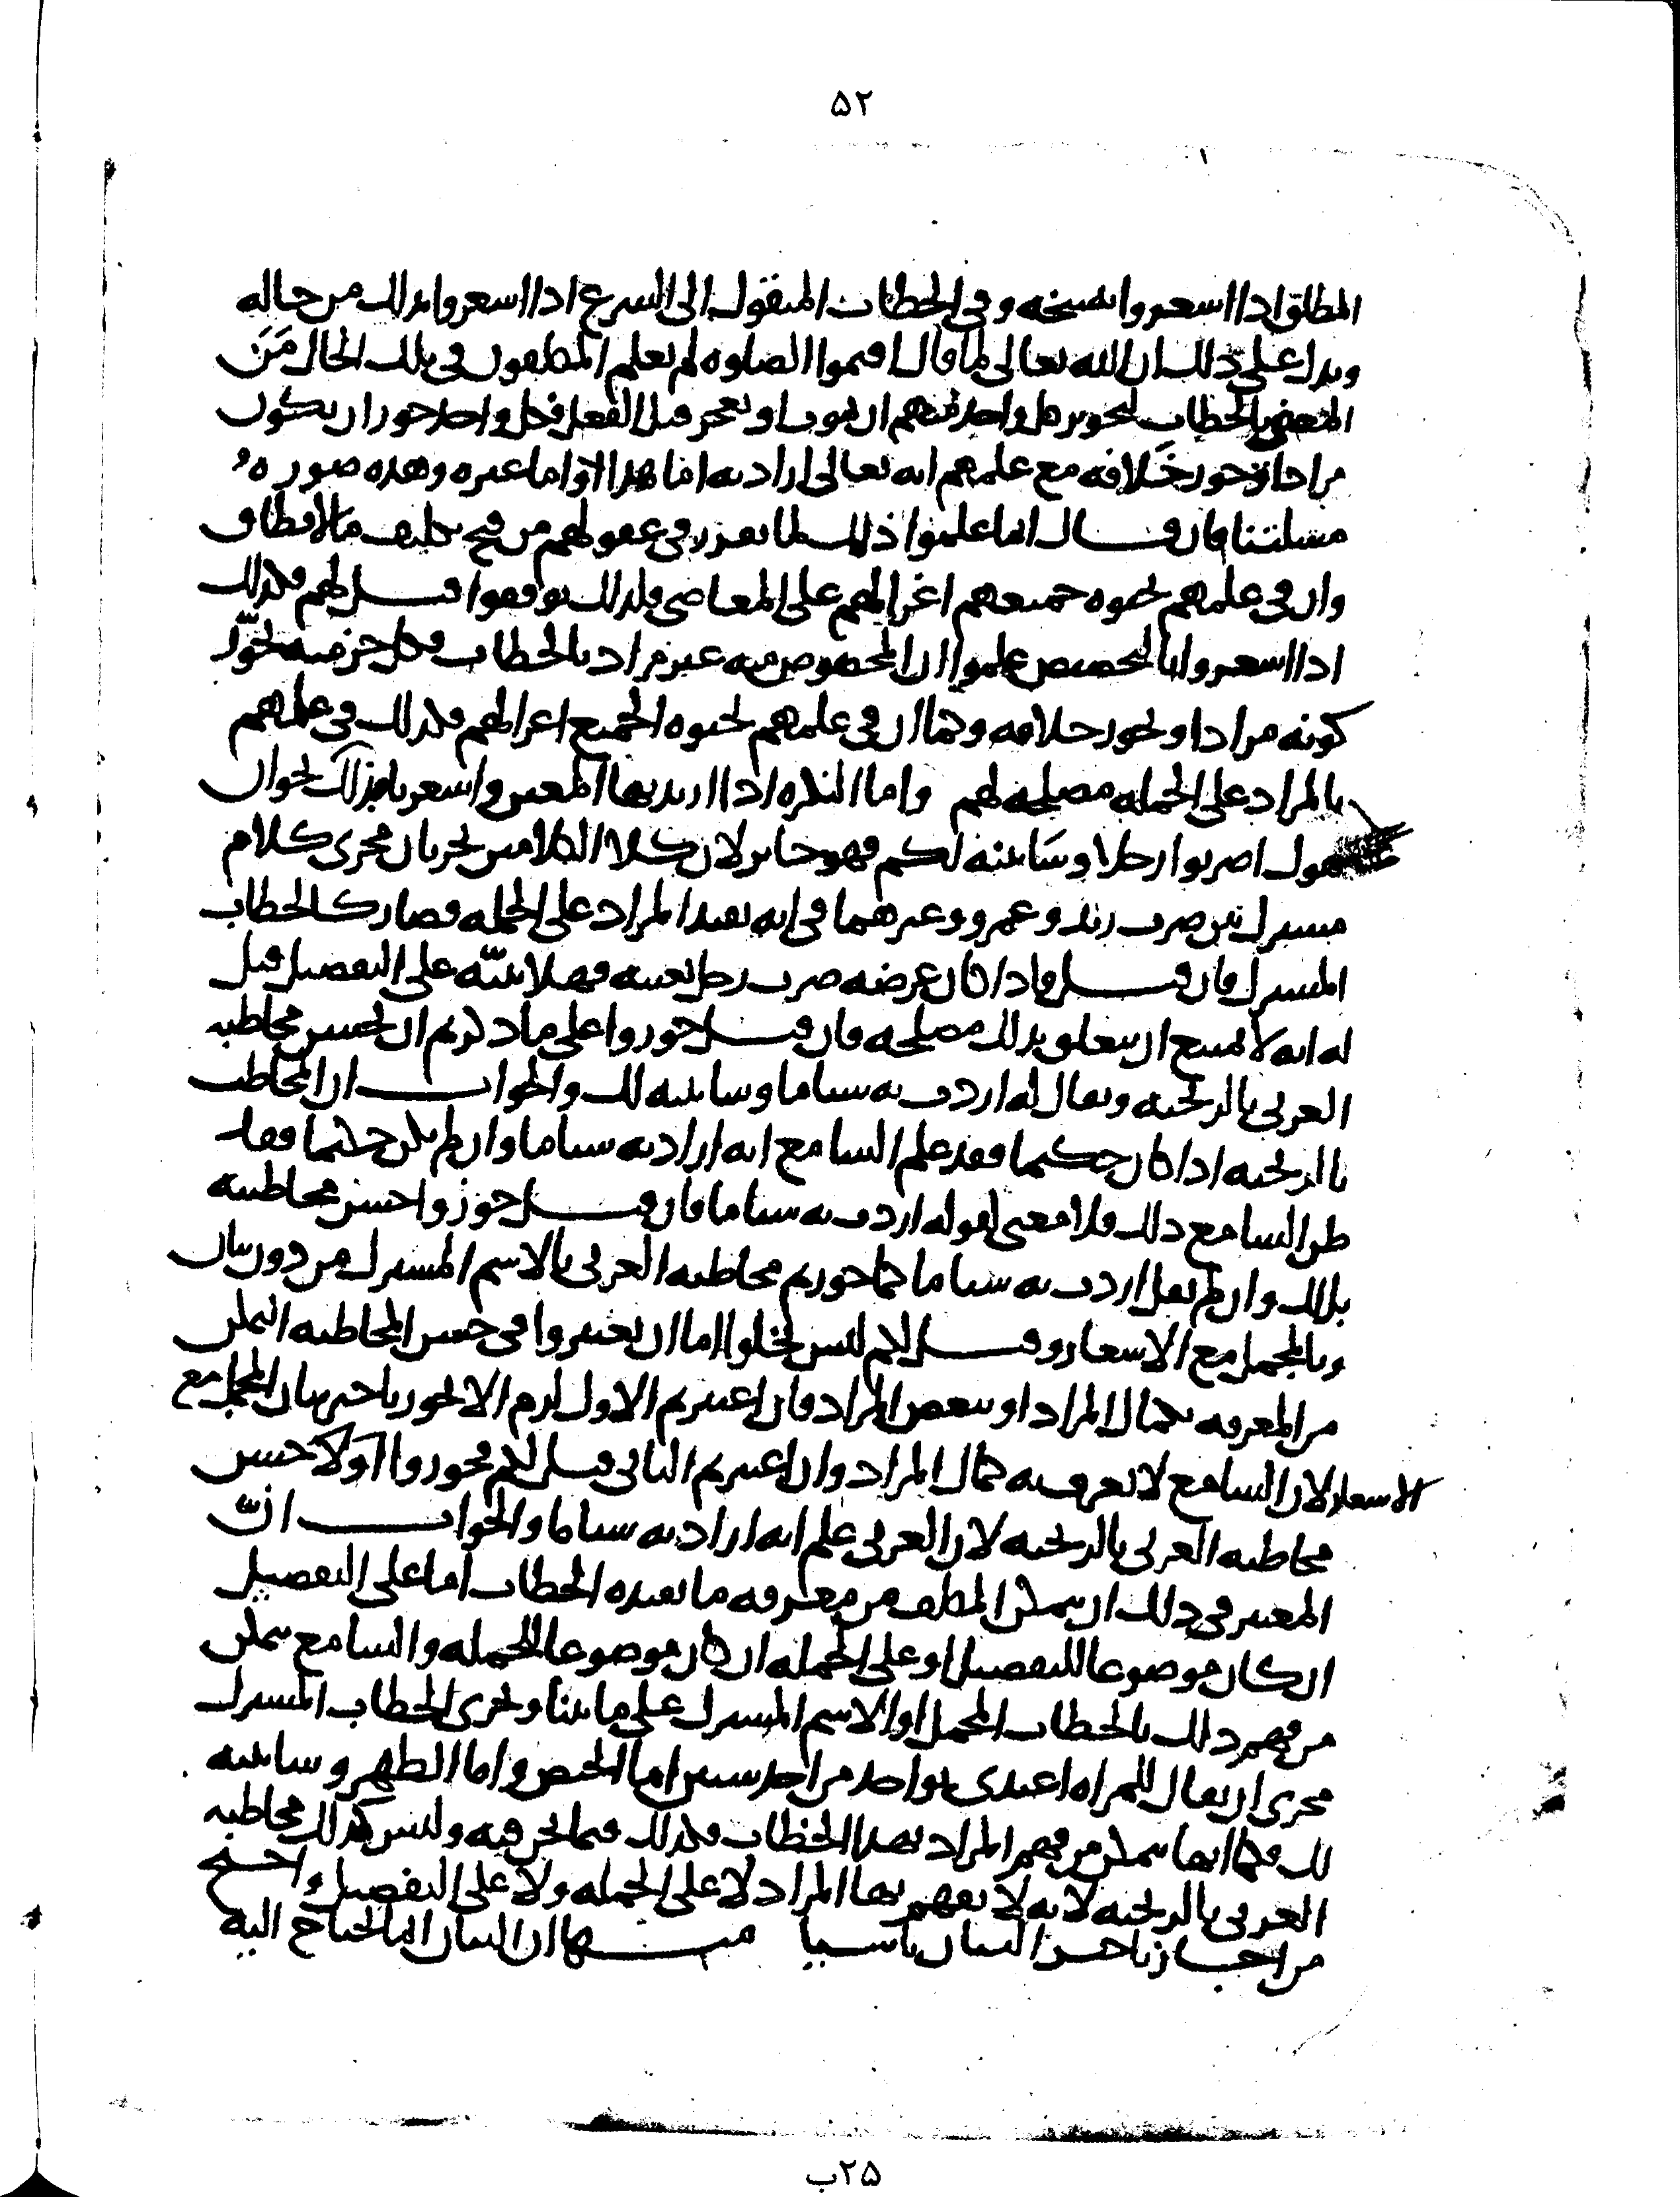 ٥٢
المطلق اذا اشعروا بنسخه وفي الخطاب المنقول الى الشرع اذا اشعروا بذلك من حاله
ويدل على ذلك ان الله تعالى لما قال اقيموا الصلوه لم يعلم المكلفون في تلك الحال مَن
المعني بالخطاب لتجويز كل واحد منهم ان يموت او يعجز قبل الفعل فكل واحد جوز ان يكون
مرادا وجوز خلافه مع علمهم انه تعالى اراد به اما هذا واما غيره وهذه صوره
مسلتنا فان قال انما علموا ذلك لما تقرر في عقولهم من قبح تكليف ما لا يطاق
وان في علمهم بحيوه جميعهم اغرا لهم على المعاصي فلذلك توقفوا قيل لهم فكذلك
اذا اشعروا بالتخصيص علموا ان المخصوص منه غير مراد بالخطاب فكل جز منه يجوّز
كونه مرادا ويجوز خلافه وكما ان في علمهم بحيوه الجميع اغرا لهم فكذلك في علمهم
بالمراد على الجمله مصلحه لهم واما النكره اذا اريد بها المعين واشعرنا بذلك نحو ان
يقول اضربوا رجلا وسابينه لكم فهو جايز لان كلا الكلامين يجريان مجرى كلام
مشترك بين ضرب زيد وعمرو وغيرهما في انه يفيد المراد على الجمله فصار كالخطاب
المشترك فان قيل فاذا كان غرضه ضرب رجل بعينه فهلا بيّنه على التفصيل قيل
له انه لا يمتنع ان يتعلق بذلك مصلحه فان قيل جوزوا على ما ذكرتم ان يحسن مخاطبه
العربي بالزنجيه ويقال له اردت به شيا ما وسابينه لك والجواب ان المخاطب
بالزنجيه اذا كان حكيما فقد علم السامع انه اراد به شيا ما وان لم يكن حكيما فقد
ظن السامع ذلك فلا معنى لقوله اردت به شيا ما فان قيل جوزوا حسن مخاطبته
بذلك وان لم يقل اردت به شيا ما كما جوزتم مخاطبه العربي بالاسم المشترك من دون بيان
وبالمجمل مع الاشعار وقيل لكم ليس يخلوا اما ان تعتبروا في حسن المخاطبه التمكن
من المعرفه بكمال المراد او ببعض المراد فان اعتبرتم الاول لزم الا يجوز تاخير بيان المجمل مع
الاشعار لان السامع لا يعرف به كمال المراد وان اعتبرتم الثاني قيل لكم فجوزوا اولا حسن
مخاطبه العربي بالزنجيه لان العربي علم انه اراد به شيا ما والجواب انّ
المعتبر في ذلك ان يتمكن المكلف من معرفه ما يفيده الخطاب اما على التفصيل
ان كان موضوعا للتفصيل او على الجمله ان كان موضوعا للجمله والسامع يتمكن
من فهم ذلك بالخطاب المجمل او الاسم المشترك على ما بينا ويجرى الخطاب المشترك
مجرى ان يقال للمراه اعتدى بواحد من احد شيين اما الحيض واما الطهر وسابينه
لك فكما انها تتمكن من فهم المراد بهذا الخطاب فكذلك فيما نحن فيه وليس كذلك مخاطبه
العربي بالزنجيه لانه لا يفهم بها المراد لا على الجمله ولا على التفصيل واحتج
من اجاز تاخير البيان باشيا منها ان البيان انما يحتاج اليه
٢٥ب